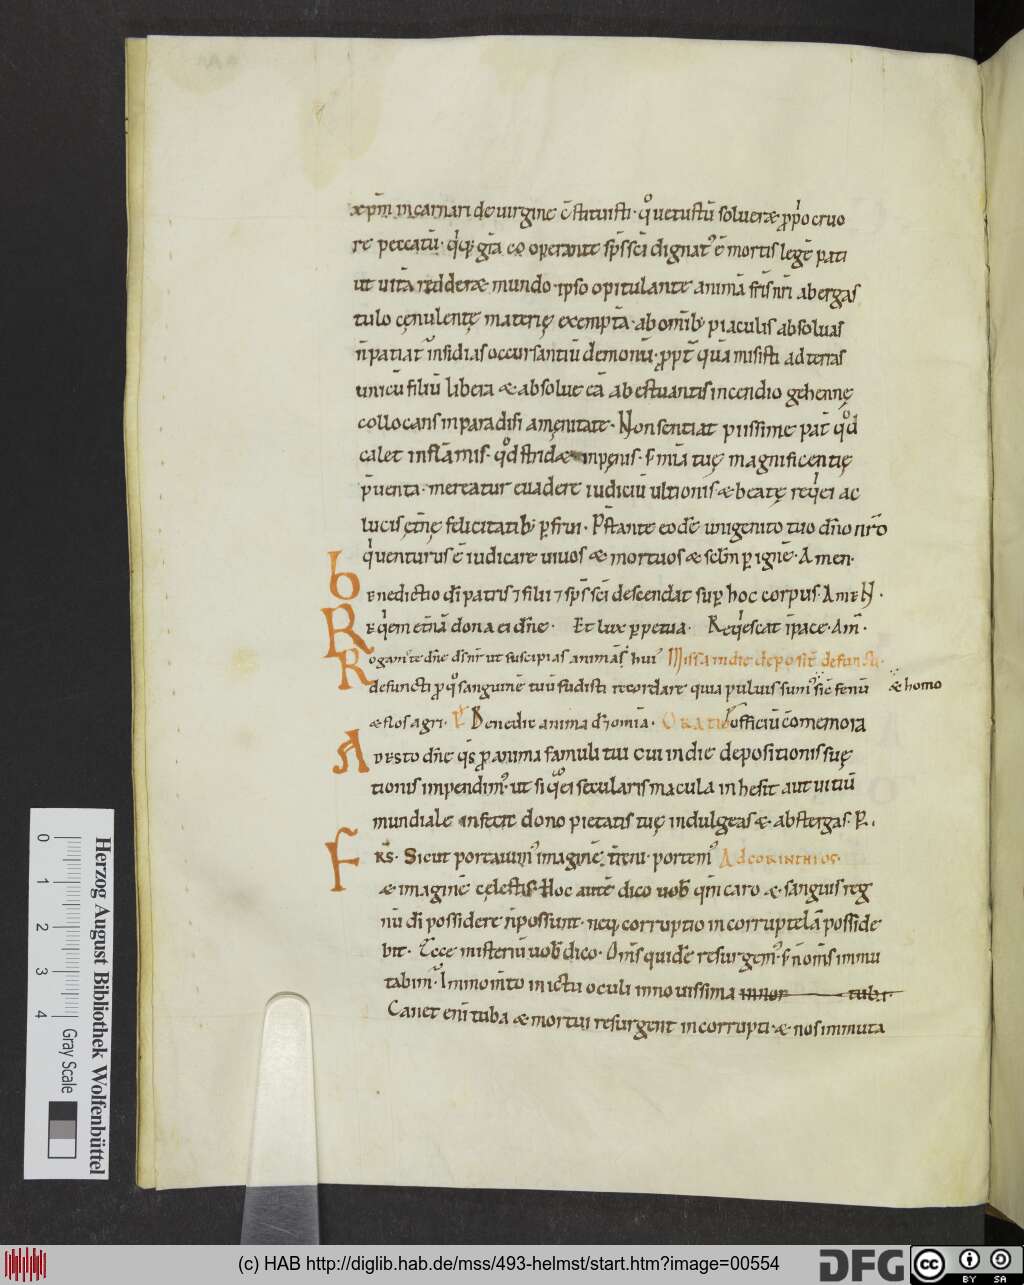 æ xp̄m incarnari de uirgine c̄stituisti· qͦ uetustū solueræ· ꝓp̍o cruo
re peccatū· q̍q; gr̄a eo operante sp̄s sc̄i dignatꝰ ē mortis legē pati
ut uitā redderæ mundo· ipso opitulante animā fr̄is nr̄i ab ergas
tulo cęnulentę materię exemptā· ab om̄ib; piaculis absoluas
n̄ patiat̃ insidias occursantiū demonū· ꝓpt̄ quā misisti ad terras
unicū filiū libera æ· absolue eā ab estuantis incendio gehennę
collocans in paradisi amęnitate· Non sentiat piissime pat̄ qͦd
calet in flāmis· qͦd stridæ in penis· s; mīa tuę magnificentię
p̄uenta· mereatur euadere iudiciū ultionis· æ beatę req̍ei ac
lucis ęt̄nę felicitatib; ꝑfrui· P̄stante eodē unigenito tuo dn̄o nr̄o
q̍ uenturus ē iudicare uiuos æ mortuos æ sc̄lm ꝑ ignē· Amen·
benedictio dī patris ⁊ filii ⁊ sp̄s sc̄i descendat suꝑ hoc corpus· AmeN·
Req̍em et̄nā dona ei dn̄e· Et lux ꝑpetua· Req̍escat ī pace· Am̄·
Rogamꝰ te dn̄e ds̄ nr̄ ut suscipias animā huiꝰ Missa in die deposit̄ defuncti·
defuncti ꝓ qͦ sanguinē tuū fudisti recordare quia puluis sumꝰ sic̄ fenū æ homo
æ flos agri· Benedic anima d̄i om̄ia· Oratio officiū c̄omemora
Adesto dn̄e qs̄ ꝓ anima famuli tui cui in die depositionis suę
tionis impendimꝰ· ut si qͦ ei secularis macula inhesit aut uitiū
mundiale infecit dono pietatis tuę indulgeas æ· abstergas· P̄·
FRS̄· Sicut portauimꝰ imaginē t̄reni· portemꝰ Ad corinthios·
æ imaginē cęlestis· Hoc autē dico uob̄ qm̄ caro æ· sanguis reg
nū dī possidere n̄ possunt· neq; corruptio incorruptelā posside
bit· Ecce misteriū uob̄ dico· Om̄s quidē resurgemꝰ· s; n̄ om̄s immu
tabimꝰ· In mom̄to in ictu oculi in nouissima
Canet eni tuba æ mortui resurgent incorrupti· æ nos immuta
0 1 2 3 4
Gray Scale
Herzog August Bibliothek Wolfenbüttel
(c) HAB http://diglib.hab.de/mss/493-helmst/start.htm?image=00554
DFG
cc BY SA